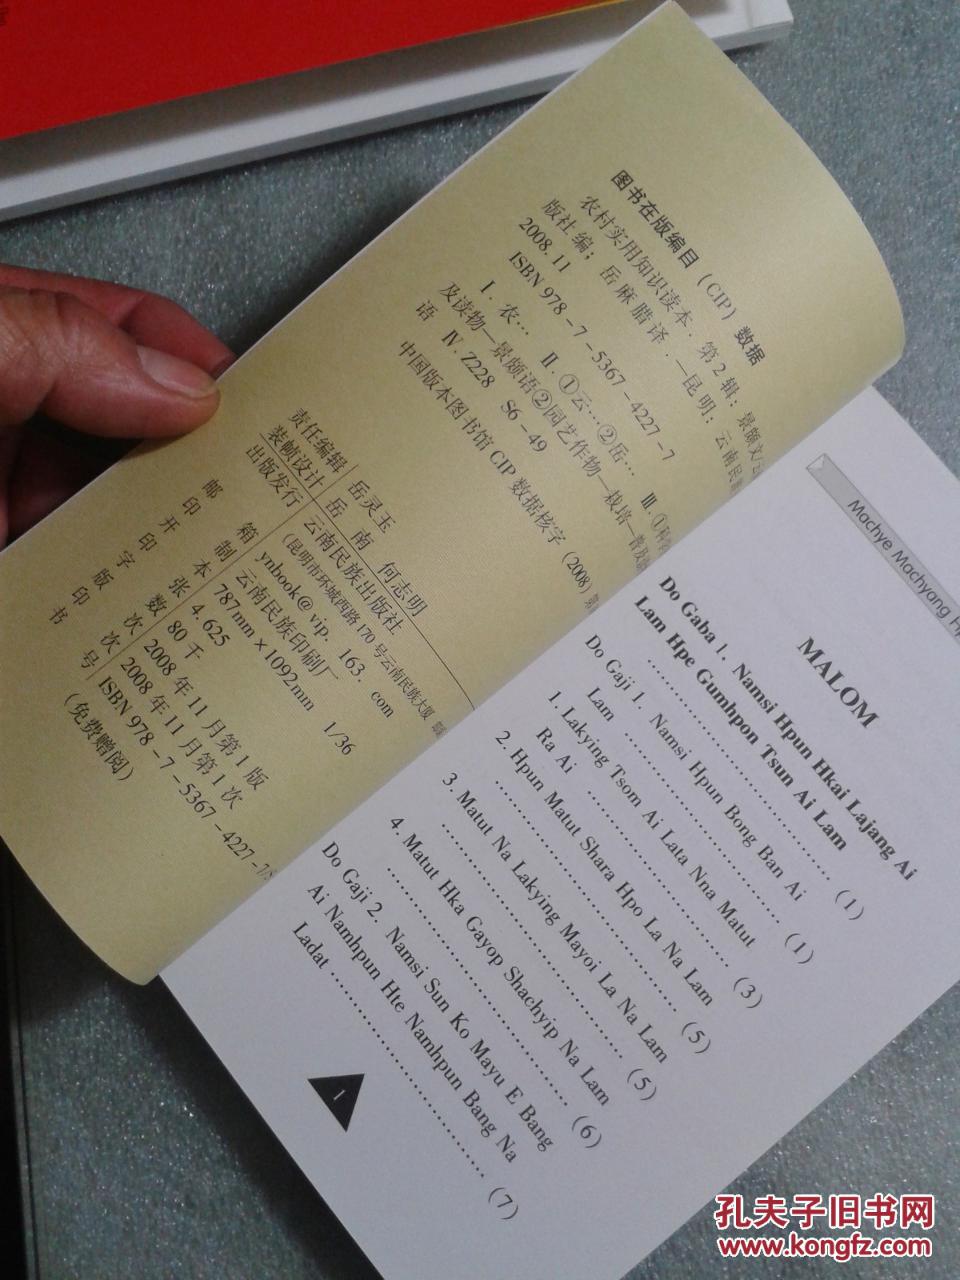 图书在版编目(CIP)数据
农村实用知识读本. 第2辑: 景颇文/云
版社编; 岳麻腊译. —昆明: 云南民
2008.11
ISBN 978-7-5367-4227-7
Ⅰ.农… Ⅱ.①云…②岳… Ⅲ.①科
及读物—景颇语②园艺作物—栽培—
语 Ⅳ.Z228 S6-49
中国版本图书馆CIP数据核字(2008)第
责任编辑 岳灵玉
装帧设计 岳 南 何志明
出版发行 云南民族出版社
(昆明市环城西路170号云南民族大厦
邮 箱 ynbook@vip.163.com
印 制 云南民族印刷厂
开 本 787mm×1092mm 1/36
印 张 4.625
字 数 80千
版 次 2008年11月第1版
印 次 2008年11月第1次
书 号 ISBN 978-7-5367-4227-7/S
(免费赠阅)
Machye Machyang Hp
MALOM
Do Gaba 1. Namsi Hpun Hkai Lajang Ai
Lam Hpe Gumhpon Tsun Ai Lam
…………………………… (1)
Do Gaji 1. Namsi Hpun Bong Ban Ai
Lam …………………… (1)
1. Lakying Tsom Ai Lata Nna Matut
Ra Ai ………………… (3)
2. Hpun Matut Shara Hpo La Na Lam
…………………………… (5)
3. Matut Na Lakying Mayoi La Na Lam
…………………………… (5)
4. Matut Hka Gayop Shachyip Na Lam
…………………………… (6)
Do Gaji 2. Namsi Sun Ko Mayu E Bang
Ai Namhpun Hte Namhpun Bang Na
Ladat …………………… (7)
1
孔夫子旧书网
www.kongfz.com